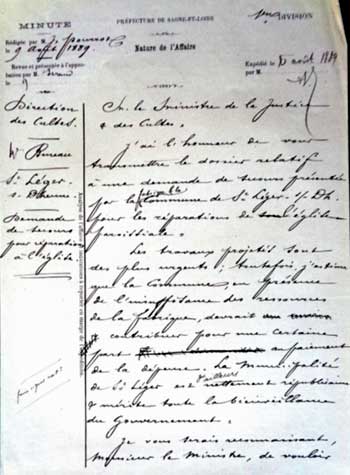 MINUTE
PRÉFECTURE DE SAONE-ET-LOIRE
1ère DIVISION
Rédigée par M.
9 août 1889.
Nature de l'Affaire
Expédié le août 1889
par M.
Revue et présentée à l'appro-
bation par M.
Direction
des Cultes.
Bureau
St. Léger
s. Dheune.
Demande
de secours
pour réparations
à l'église.
Analyse de l'affaire
M. le Ministre de la Justice
& des Cultes.
J'ai l'honneur de vous
transmettre le dossier relatif
à une demande de secours présentée
par la Commune de St. Léger s/ Dh.
pour les réparations de son église
paroissiale.
Les travaux projetés sont
des plus urgents ; toutefois, j'estime
que la Commune, en présence
de l'insuffisance des ressources
de la fabrique, devrait
contribuer pour une certaine
part au paiement
de la dépense. La Municipalité
de St Léger est d'ailleurs nettement républicaine
& mérite toute la bienveillance
du Gouvernement.
Je vous serais reconnaissant,
Monsieur le Ministre, de vouloir